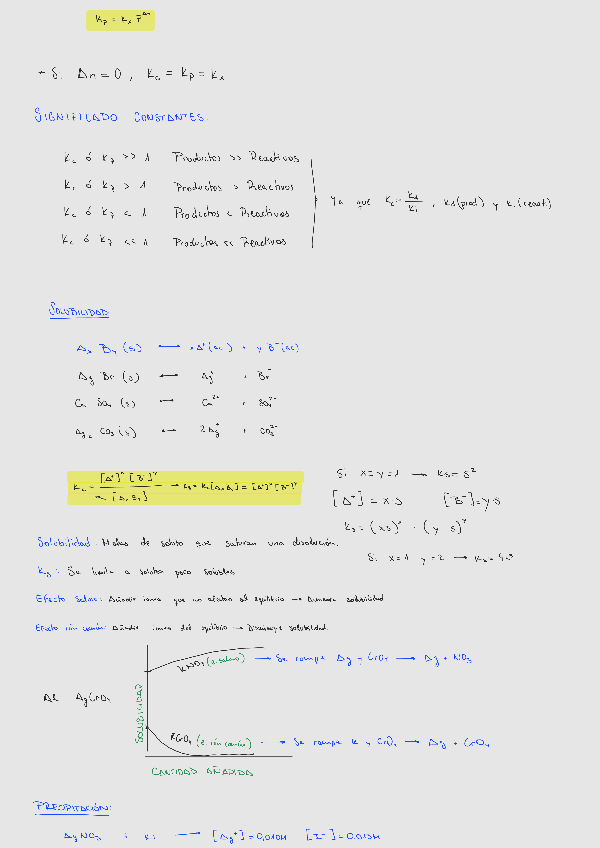 Kp = Kx P^Δn
- Si Δn = 0, Kc = Kp = Kx
SIGNIFICADO CONSTANTES
Kc ó Kp >> 1 Productos >> Reactivos
Kc ó Kp > 1 Productos > Reactivos
Kc ó Kp < 1 Productos < Reactivos
Kc ó Kp << 1 Productos << Reactivos
Ya que Kc = k1/k-1, k1(prod) y k-1(react)
SOLUBILIDAD
Ax By (s) ⟷ xA⁺(ac) + y B⁻(ac)
Ag Br (s) ⟷ Ag⁺ + Br⁻
Ca SO4 (s) ⟷ Ca²⁺ + SO4²⁻
Ag2 CO3 (s) ⟷ 2Ag⁺ + CO3²⁻
Kc = [A⁺]ˣ [B⁻]ʸ / [AxBy] → Ks = Kc [AxBy] = [A⁺]ˣ [B⁻]ʸ
Si x=y=1 → Ks = S²
[A⁺] = x·S [B⁻] = y·S
Ks = (xS)ˣ · (y S)ʸ
Si x=1 y=2 → Ks = 4S³
Solubilidad: Moles de soluto que saturan una disolución.
Ks: Se limita a solutos poco solubles
Efecto Salino: Añadir iones que no afectan al equilibrio → Aumenta solubilidad
Efecto ión común: Añadir iones del equilibrio → Disminuye solubilidad.
KNO3 (e. salino) → Se rompe Ag y CrO4 → Ag + NO3
AgCrO4
SOLUBILIDAD
KCrO4 (e. ión común) → Se rompe K y CrO4 → Ag + CrO4
CANTIDAD AÑADIDA
PRECIPITACIÓN:
AgNO3 + KI → [Ag⁺] = 0,010M [I⁻] = 0,015M